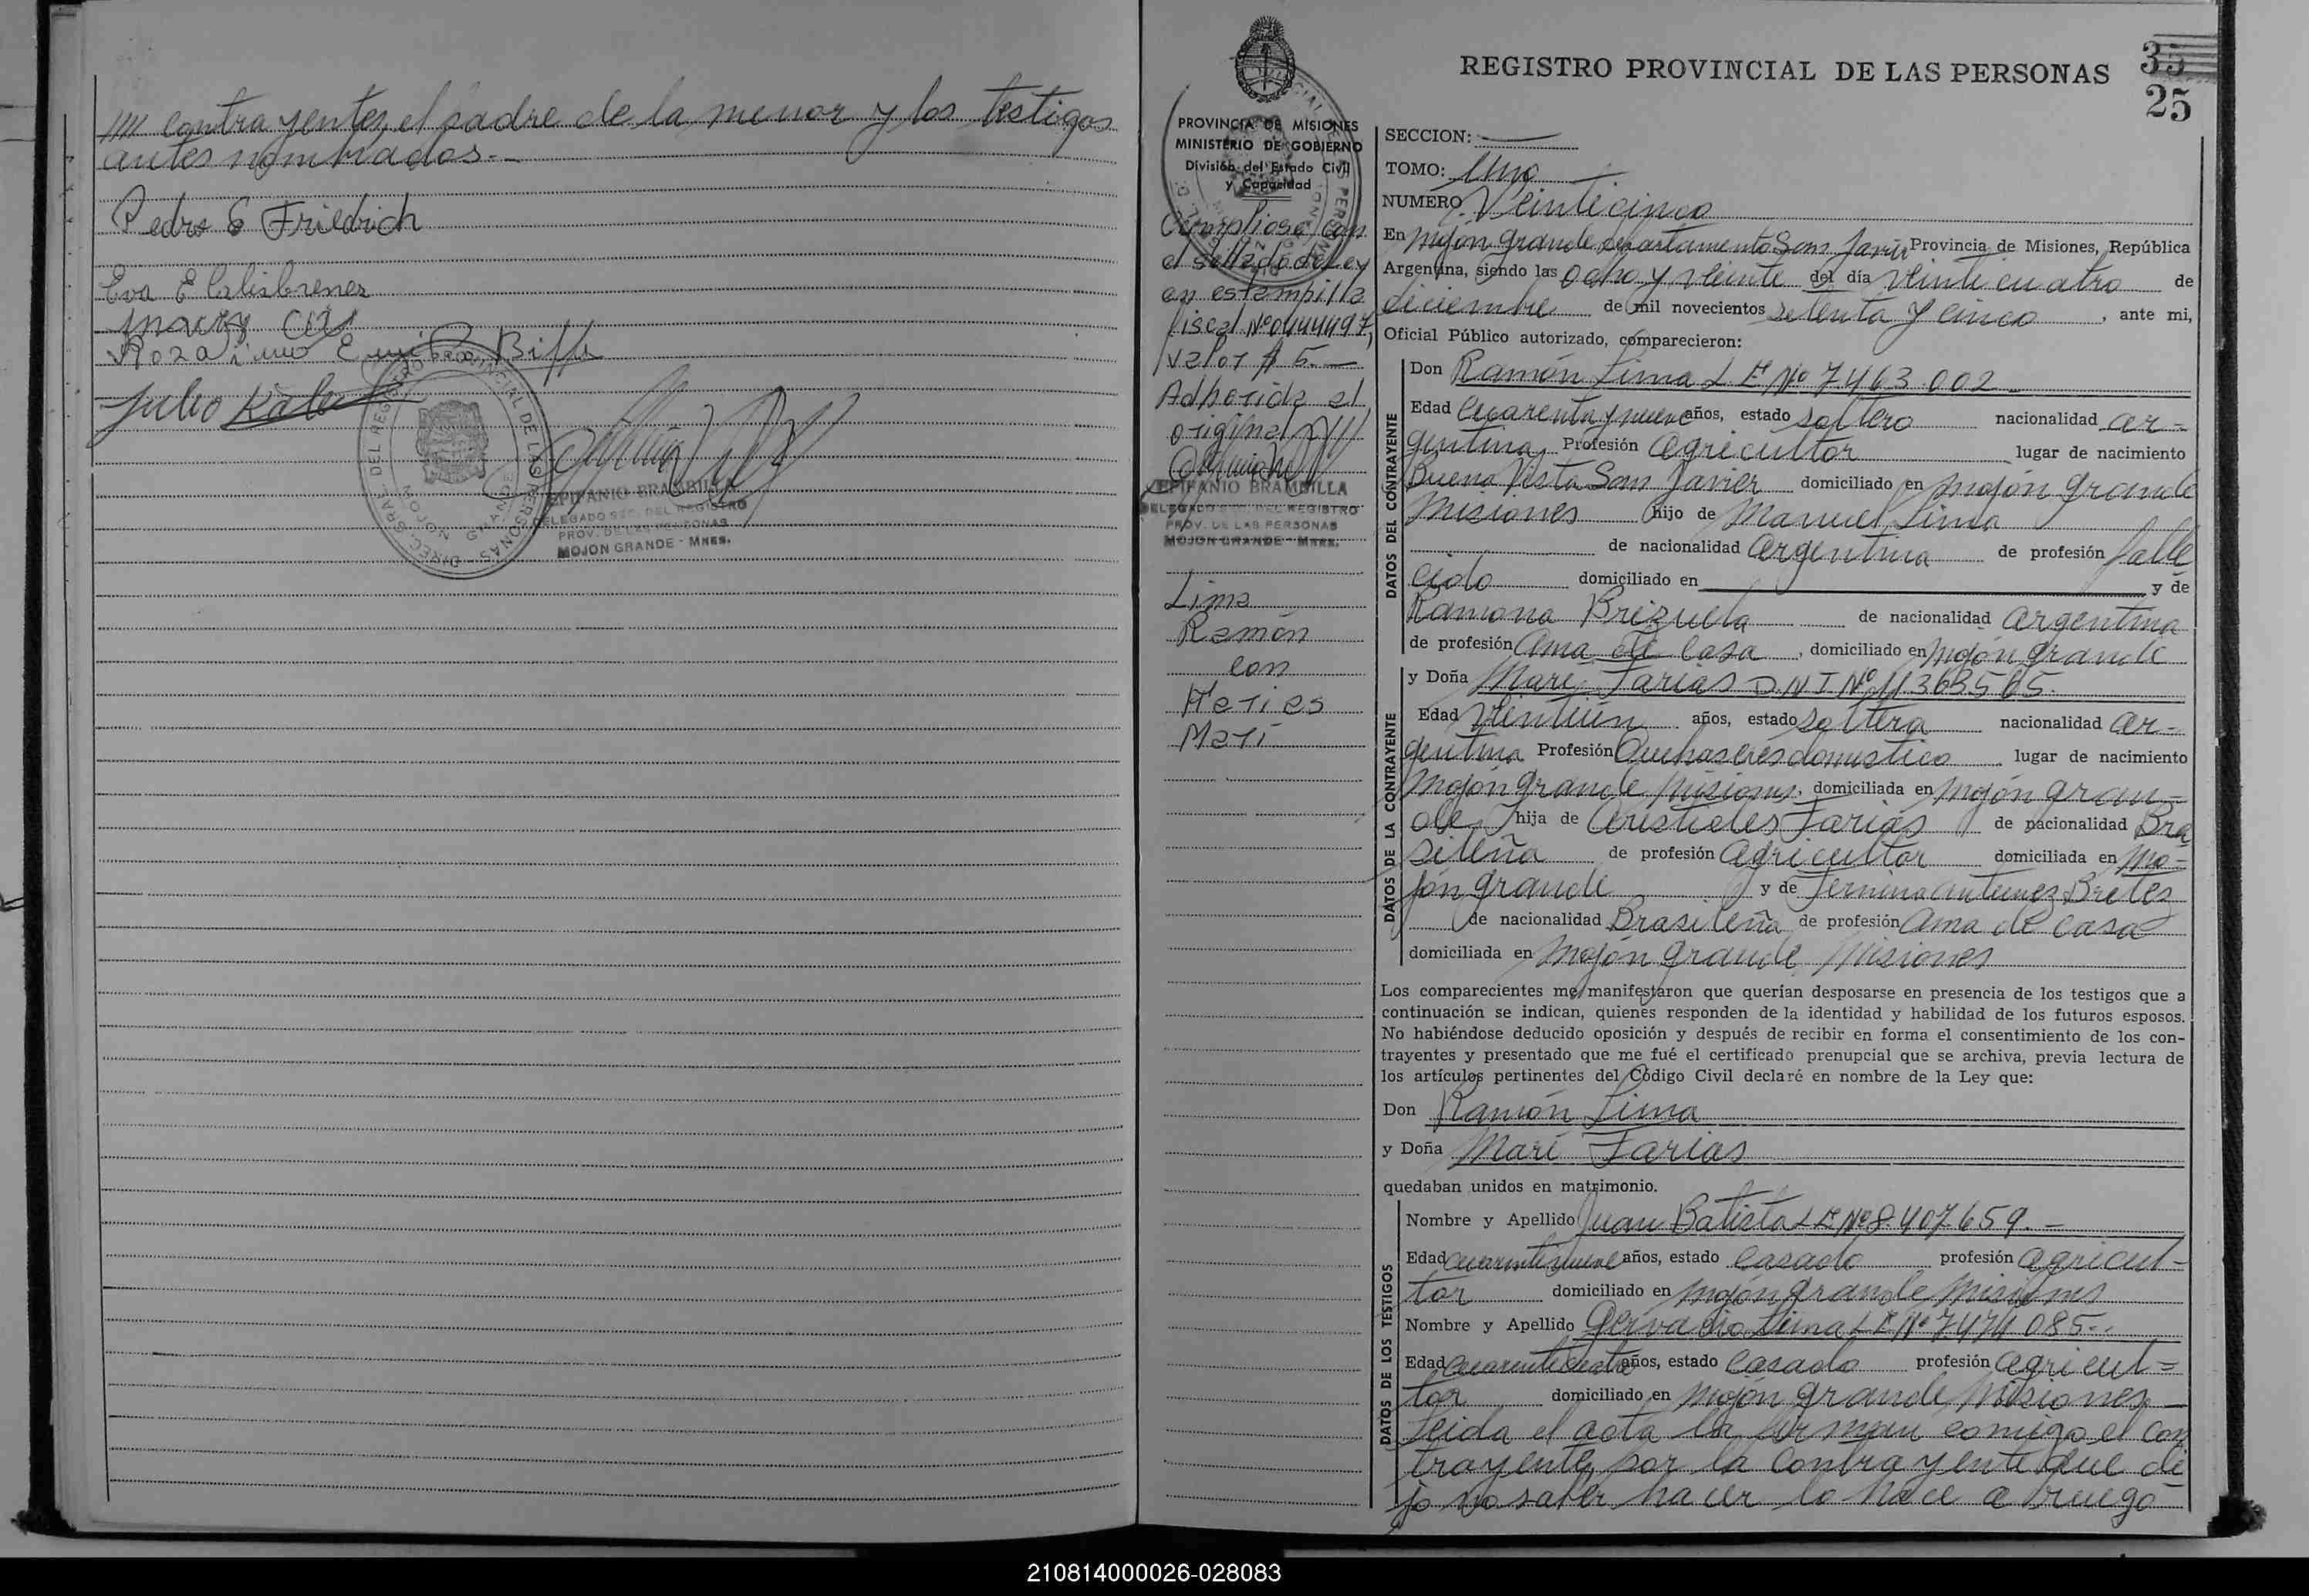 //// contrayentes, el padre de la menor y los testigos
antes nombrados.-
Pedro E Friedrich
Eva E
Julio
EPIFANIO BRAMBILLA
DELEGADO SEC. DEL REGISTRO
PROV. DE LAS PERSONAS
MOJON GRANDE - MNES.
REGISTRO PROVINCIAL DE LAS PERSONAS
35
25
PROVINCIA DE MISIONES
MINISTERIO DE GOBIERNO
División del Estado Civil
y Capacidad
Cumpliose con
el sellado de Ley
en estampilla
fiscal Nº 0444497,
valor $ 5.—
Adherida al
original
EPIFANIO BRAMBILLA
DELEGADO SEC. DEL REGISTRO
PROV. DE LAS PERSONAS
MOJON GRANDE - MNES.
Lima
Ramón
con
Farias
Marí
SECCION: —
TOMO: Uno
NUMERO Veinticinco
En Mojón grande departamento San Javier Provincia de Misiones, República
Argentina, siendo las ocho y veinte del día veinticuatro de
diciembre de mil novecientos setenta y cinco, ante mi,
Oficial Público autorizado, comparecieron:
DATOS DEL CONTRAYENTE
Don Ramón Lima L E Nº 7463.002
Edad cuarenta y nueve años, estado soltero nacionalidad ar-
gentina Profesión agricultor lugar de nacimiento
Buena Vista San Javier domiciliado en Mojón grande
Misiones hijo de Manuel Lima
de nacionalidad argentina de profesión falle
cido domiciliado en — y de
Ramona Brizuela de nacionalidad argentina
de profesión ama de casa, domiciliado en Mojón grande
DATOS DE LA CONTRAYENTE
y Doña Marí Farias D.N I Nº 11.363565.
Edad veintiún años, estado soltera nacionalidad ar-
gentina Profesión Quehaseres domestico lugar de nacimiento
Mojón grande Misiones, domiciliada en Mojón gran-
de hija de Aristides Farias de nacionalidad Bra
sileña de profesión agricultor domiciliada en Mo-
jón grande y de Antunez Brites
de nacionalidad Brasileña de profesión ama de casa
domiciliada en Mojón grande Misiones
Los comparecientes me manifestaron que querían desposarse en presencia de los testigos que a
continuación se indican, quienes responden de la identidad y habilidad de los futuros esposos.
No habiéndose deducido oposición y después de recibir en forma el consentimiento de los con-
trayentes y presentado que me fué el certificado prenupcial que se archiva, previa lectura de
los artículos pertinentes del Código Civil declaré en nombre de la Ley que:
Don Ramón Lima
y Doña Marí Farias
quedaban unidos en matrimonio.
DATOS DE LOS TESTIGOS
Nombre y Apellido Juan Batista L E Nº 8.407.659.-
Edad años, estado casado profesión agricul-
tor domiciliado en Mojón grande Misiones
Nombre y Apellido Gervacio Lima L E Nº 7.474 085-.
Edad años, estado casado profesión agricul-
tor domiciliado en Mojón grande Misiones
Leida el acta la firman comigo el con
trayente, por la contrayente que di
jo no saber hacer lo hace a ruego
210814000026-028083